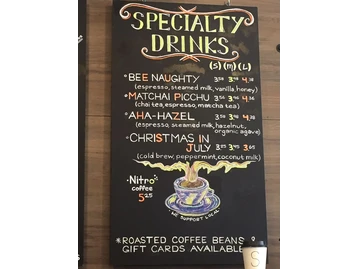 SPECIALTY
DRINKS
(S) (M) (L)
*BEE NAUGHTY
(espresso, steamed milk, vanilla, honey)
*MATCHAI PICCHU
(chai tea, espresso, matcha tea)
*AHA-HAZEL
(espresso, steamed milk, hazelnut,
organic agave)
*CHRISTMAS IN
JULY
(cold brew, peppermint, coconut milk)
*Nitro
coffee
5.25
WE SUPPORT LOCAL
*ROASTED COFFEE BEANS &
GIFT CARDS AVAILABLE
S